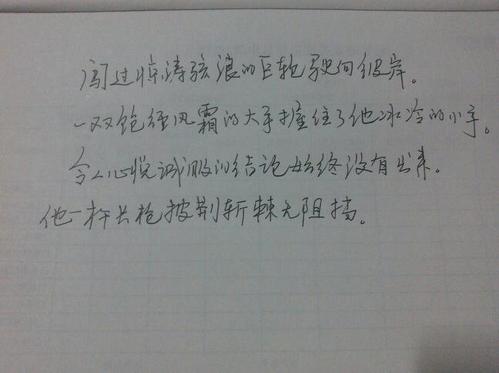 闯过惊涛骇浪的巨轮驶向彼岸。
一双饱经风霜的大手握住了他冰冷的小手。
令人心悦诚服的结论始终没有出来。
他一杆长枪披荆斩棘无阻挡。